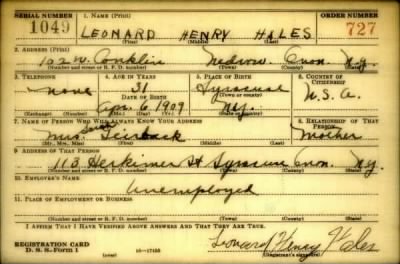 SERIAL NUMBER 1. NAME (Print) ORDER NUMBER
1049 LEONARD HENRY HALES 727
(First) (Middle) (Last)
2. ADDRESS (Print)
102 W. Conklin Nedrow. Onon. N.Y.
(Number and street or R. F. D. number) (Town) (County) (State)
3. TELEPHONE 4. AGE IN YEARS 5. PLACE OF BIRTH 6. COUNTRY OF CITIZENSHIP
none 31 Syracuse
DATE OF BIRTH (Town or county) U.S.A.
Apr. 6 1909 N.Y.
(Exchange) (Number) (Mo.) (Day) (Yr.) (State or country)
7. NAME OF PERSON WHO WILL ALWAYS KNOW YOUR ADDRESS 8. RELATIONSHIP OF THAT PERSON
Mrs. Sarah Mother
(Mr., Mrs., Miss) (First) (Middle) (Last)
9. ADDRESS OF THAT PERSON
113 Herkimer St Syracuse Onon. N.Y.
(Number and street or R. F. D. number) (Town) (County) (State)
10. EMPLOYER'S NAME
Unemployed
11. PLACE OF EMPLOYMENT OR BUSINESS
(Number and street or R. F. D. number) (Town) (County) (State)
I AFFIRM THAT I HAVE VERIFIED ABOVE ANSWERS AND THAT THEY ARE TRUE.
REGISTRATION CARD
D. S. S. Form 1 16-17105 Leonard Henry Hales
(Registrant's signature)